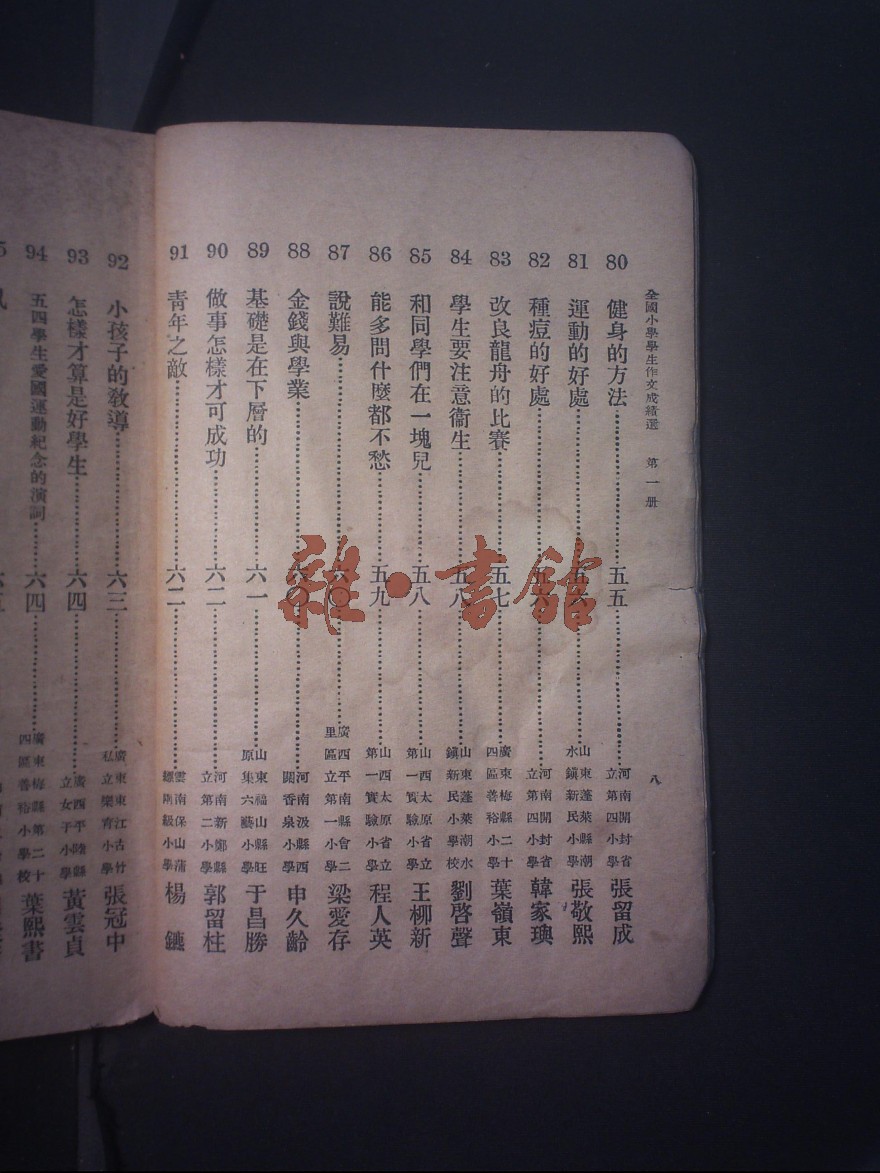 全國小學學生作文成績選 第一册
八
80 健身的方法……五五……河南開封省立第四小學 張留成
81 運動的好處……五六……山東蓬萊縣潮水鎮新民小學 張敬熙
82 種痘的好處……五六……河南開封省立第四小學 韓家璵
83 改良龍舟的比賽……五七……廣東梅縣二十四區善裕小學 葉嶺東
84 學生要注意衞生……五八……山東蓬萊潮水鎮新民小學校 劉啓聲
85 和同學們在一塊兒……五八……山西太原省立第一實驗小學 王柳新
86 能多問什麼都不愁……五九……山西太原省立第一實驗小學 程人英
87 說難易……六〇……廣西平南縣會二里區立第一小學 梁愛存
88 金錢與學業……六〇……河南汲縣西關香泉小學 申久齡
89 基礎是在下層的……六一……山東福山縣旺原集六藝小學 于昌勝
90 做事怎樣才可成功……六二……河南新鄭縣立第二小學 郭留柱
91 青年之敵……六二……雲南保山蒲縹兩級小學 楊
92 小孩子的敎導……六三……廣東東江古竹私立樂育小學 張冠中
93 怎樣才算是好學生……六四……廣西平縣立女子小學 黃雲貞
94 五四學生愛國運動紀念的演詞……六四……廣東梅縣第二十四區善裕小學校 葉熙書
雜·書館